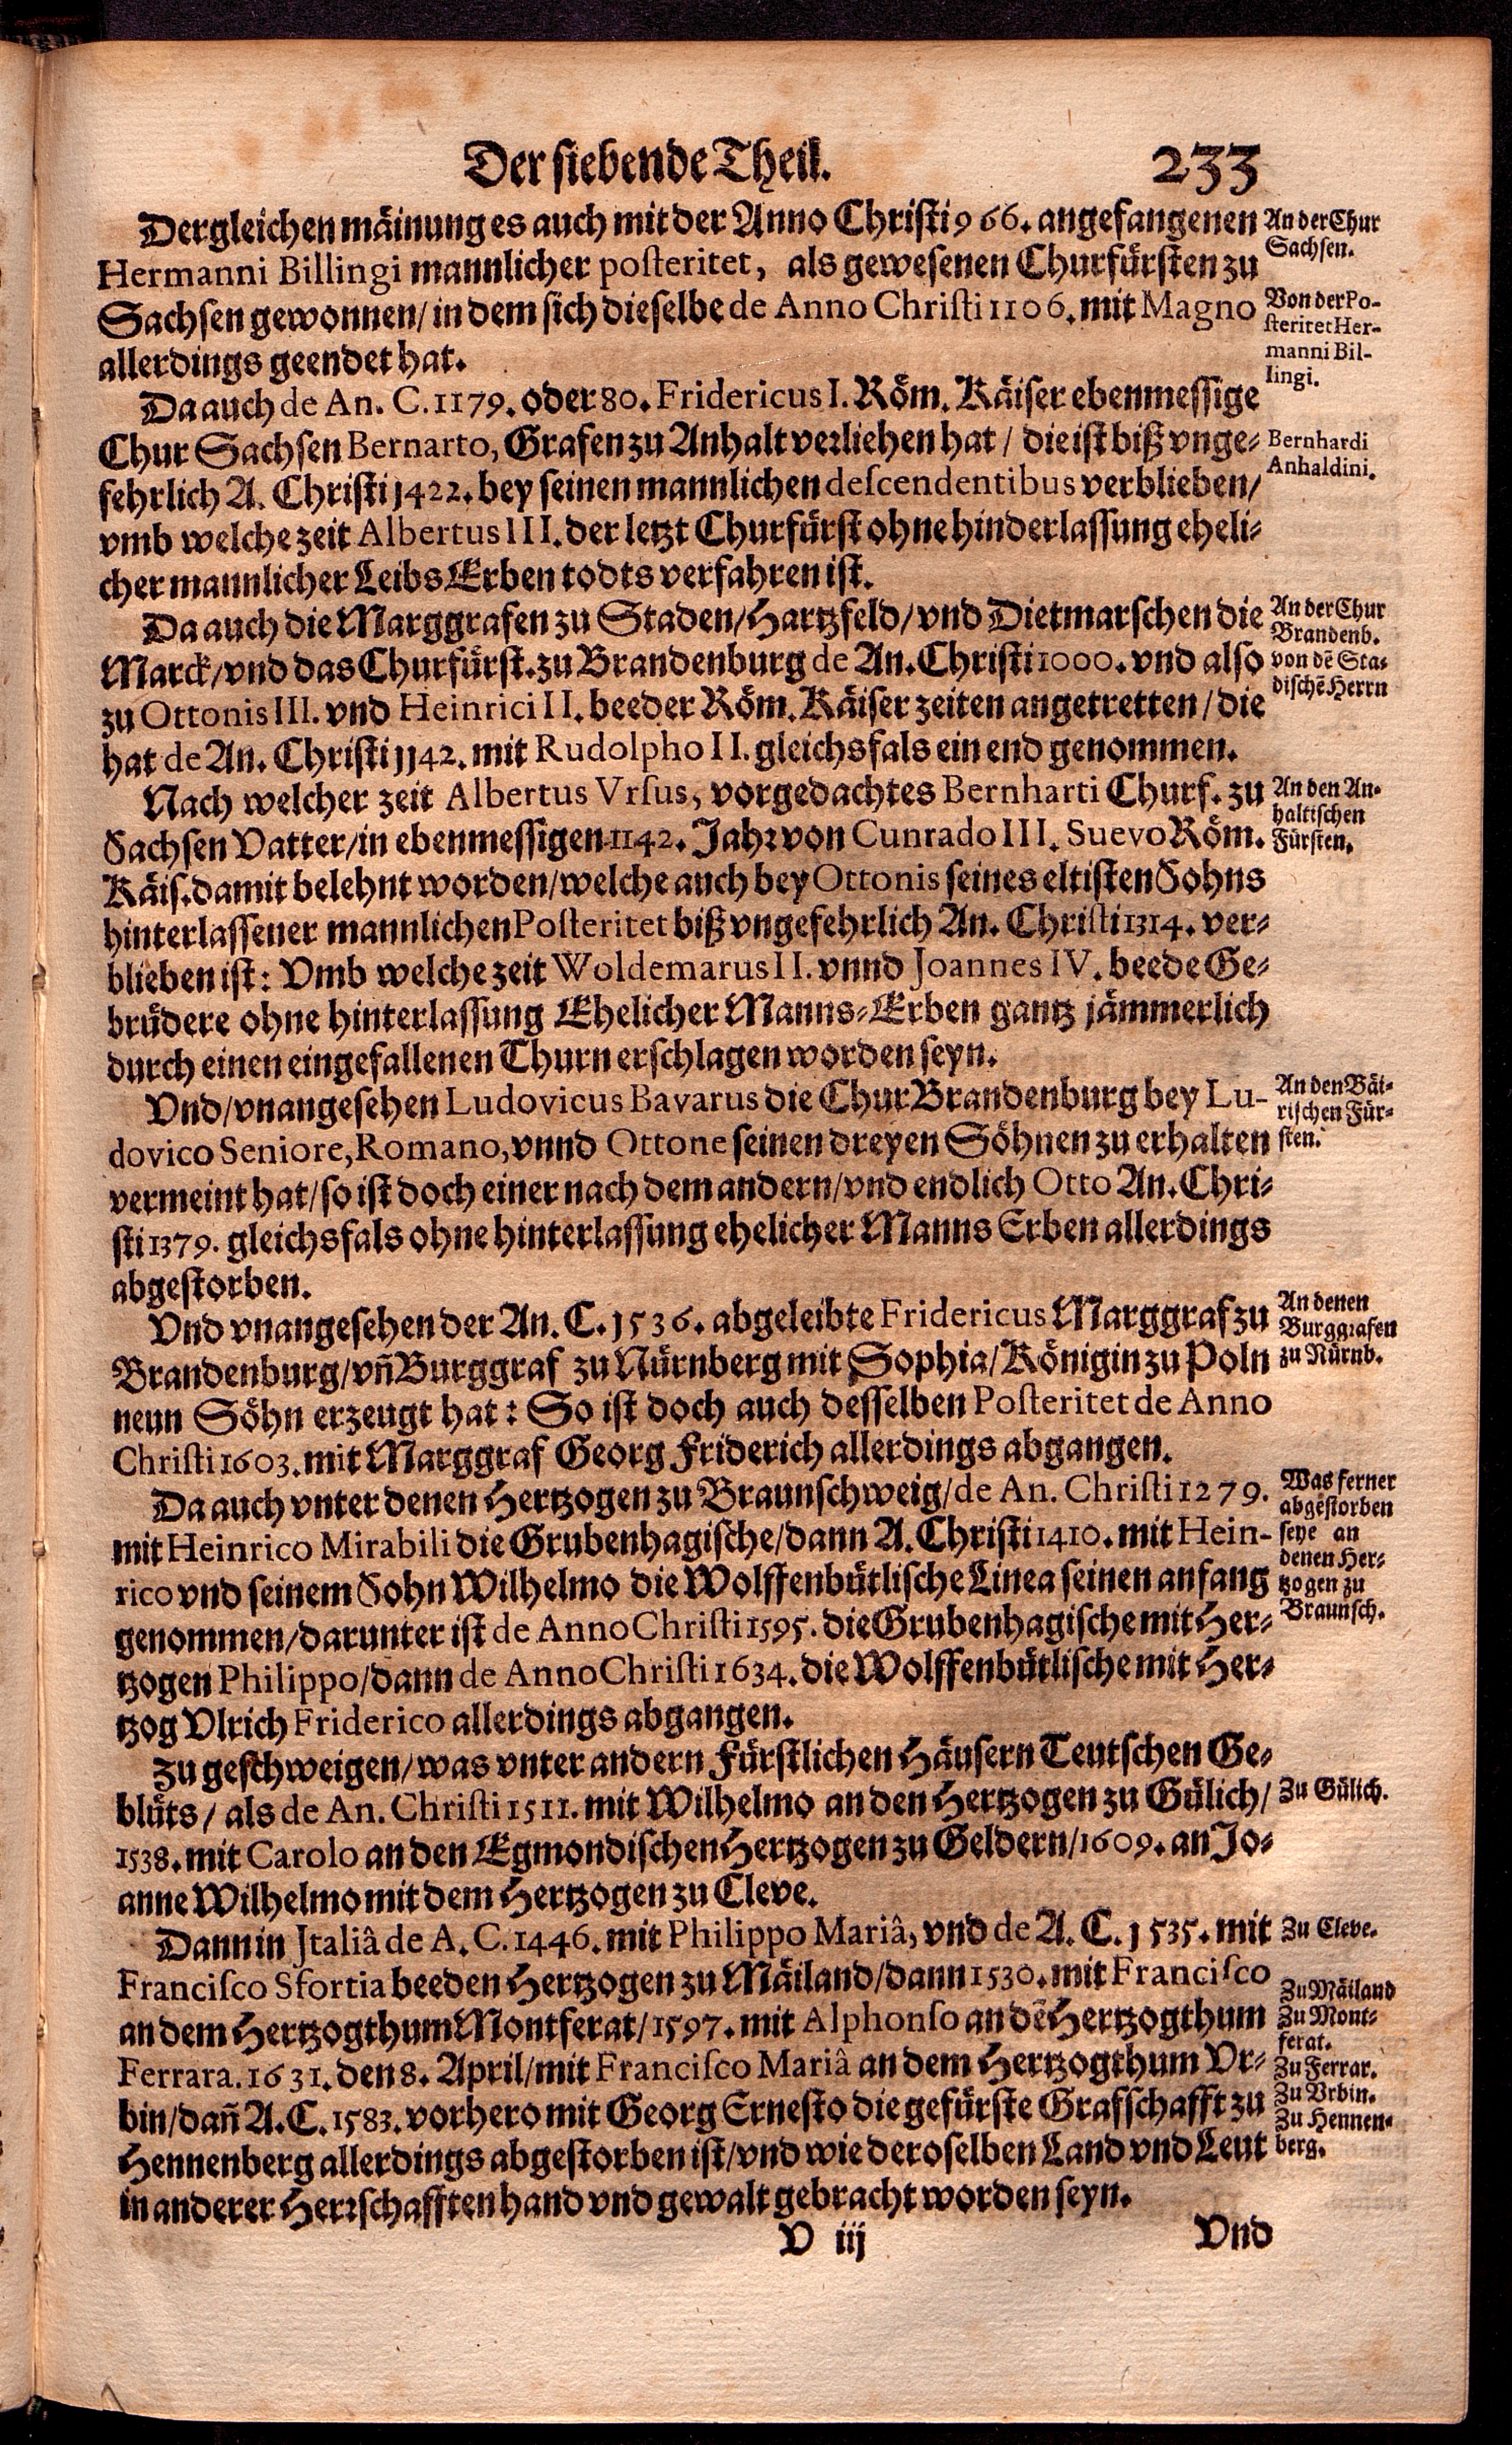 Der siebende Theil. 233
Dergleichen mäinung es auch mit der Anno Christi 966. angefangenen
Hermanni Billingi mannlicher posteritet, als gewesenen Churfürsten zu
Sachsen gewonnen/ in dem sich dieselbe de Anno Christi 1106. mit Magno
allerdings geendet hat.
An der Chur
Sachsen.
Von der Po-
steritet Her-
manni Bil-
lingi.
Da auch de An. C. 1179. oder 80. Fridericus I. Röm. Käiser ebenmessige
Chur Sachsen Bernarto, Grafen zu Anhalt verliehen hat / die ist biß vnge-
fehrlich A. Christi 1422. bey seinen mannlichen descendentibus verblieben/
vmb welche zeit Albertus III. der letzt Churfürst ohne hinderlassung eheli-
cher mannlicher Leibs Erben todts verfahren ist.
Bernhardi
Anhaldini.
Da auch die Marggrafen zu Staden/ Hartzfeld/ vnd Dietmarschen die
Marck/ vnd das Churfürst. zu Brandenburg de An. Christi 1000. vnd also
zu Ottonis III. vnd Heinrici II. beeder Röm. Käiser zeiten angetretten / die
hat de An. Christi 1142. mit Rudolpho II. gleichsfals ein end genommen.
An der Chur
Brandenb.
von dē Sta-
dischē Herrn
Nach welcher zeit Albertus Vrsus, vorgedachtes Bernharti Churf. zu
Sachsen Vatter/ in ebenmessigen 1142. Jahr von Cunrado III. Suevo Röm.
Käis. damit belehnt worden/ welche auch bey Ottonis seines eltisten Sohns
hinterlassener mannlichen Posteritet biß vngefehrlich An. Christi 1314. ver-
blieben ist: Vmb welche zeit Woldemarus II. vnnd Joannes IV. beede Ge-
brüdere ohne hinterlassung Ehelicher Manns-Erben gantz jämmerlich
durch einen eingefallenen Thurn erschlagen worden seyn.
An den An-
haltischen
Fürsten.
Vnd/ vnangesehen Ludovicus Bavarus die Chur Brandenburg bey Lu-
dovico Seniore, Romano, vnnd Ottone seinen dreyen Söhnen zu erhalten
vermeint hat/ so ist doch einer nach dem andern/ vnd endlich Otto An. Chri-
sti 1379. gleichsfals ohne hinterlassung ehelicher Manns Erben allerdings
abgestorben.
An den Bäi-
rischen Für-
sten.
Vnd vnangesehen der An. C. 1536. abgeleibte Fridericus Marggraf zu
Brandenburg/ vn̄ Burggraf zu Nürnberg mit Sophia/ Königin zu Poln
neun Söhn erzeugt hat: So ist doch auch desselben Posteritet de Anno
Christi 1603. mit Marggraf Georg Friderich allerdings abgangen.
An denen
Burggrafen
zu Nürnb.
Da auch vnter denen Hertzogen zu Braunschweig/ de An. Christi 1279.
mit Heinrico Mirabili die Grubenhagische/ dann A. Christi 1410. mit Hein-
rico vnd seinem Sohn Wilhelmo die Wolffenbütlische Linea seinen anfang
genommen/ darunter ist de Anno Christi 1595. die Grubenhagische mit Her-
tzogen Philippo/ dann de Anno Christi 1634. die Wolffenbütlische mit Her-
tzog Vlrich Friderico allerdings abgangen.
Was ferner
abgestorben
seye an
denen Her-
tzogen zu
Braunsch.
Zu geschweigen/ was vnter andern Fürstlichen Häusern Teutschen Ge-
blüts / als de An. Christi 1511. mit Wilhelmo an den Hertzogen zu Gülich/
1538. mit Carolo an den Egmondischen Hertzogen zu Geldern/ 1609. an Jo-
anne Wilhelmo mit dem Hertzogen zu Cleve.
Zu Gülich.
Dann in Jtaliâ de A. C. 1446. mit Philippo Mariâ, vnd de A. C. 1535. mit
Francisco Sfortia beeden Hertzogen zu Mäiland/ dann 1530. mit Francisco
an dem Hertzogthum Montferat/ 1597. mit Alphonso an dē Hertzogthum
Ferrara. 1631. den 8. April/ mit Francisco Mariâ an dem Hertzogthum Vr-
bin/ dan̄ A. C. 1583. vorhero mit Georg Ernesto die gefürste Grafschafft zu
Hennenberg allerdings abgestorben ist/ vnd wie deroselben Land vnd Leut
in anderer Herrschafften hand vnd gewalt gebracht worden seyn.
Zu Cleve.
Zu Mäiland
Zu Mont-
ferat.
Zu Ferrar.
Zu Vrbin.
Zu Hennen-
berg.
V iij Vnd